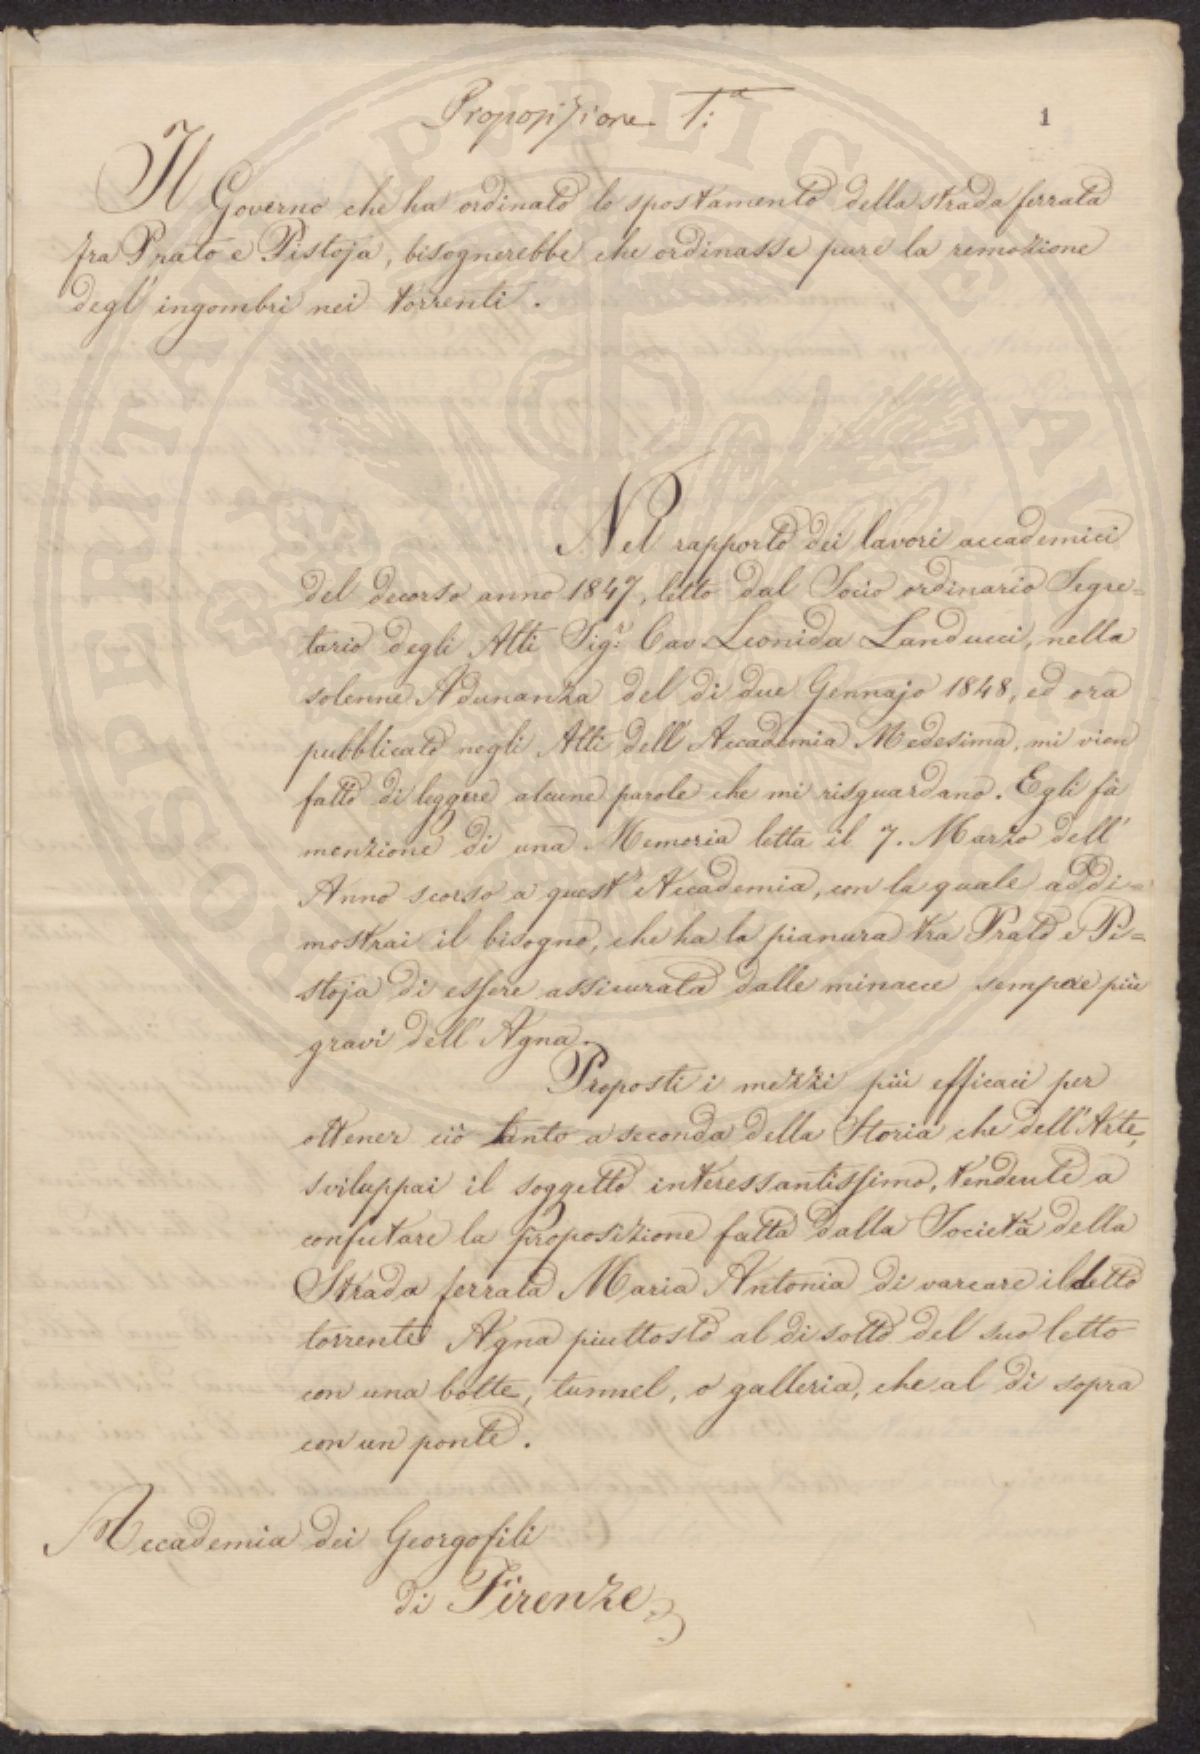 Proposizione 1.ª
1
Il Governo che ha ordinato lo spostamento della strada ferrata
fra Prato e Pistoja, bisognerebbe che ordinasse pure la remozione
degl' ingombri nei torrenti.
Nel rapporto dei lavori accademici
del decorso anno 1847, letto dal Socio ordinario Segre=
tario degli Atti Sig.r Cav. Leonida Landucci, nella
solenne Adunanza del di due Gennajo 1848, ed ora
pubblicato negli Atti dell' Accademia Medesima, mi vien
fatto di leggere alcune parole che mi risguardano. Egli fà
menzione di una Memoria letta il 7. Marzo dell'
Anno scorso a quest' Accademia, con la quale addi=
mostrai il bisogno, che ha la pianura tra Prato e Pi=
stoja di essere assicurata dalle minacce sempre più
gravi dell' Agna.
Proposti i mezzi più efficaci per
ottener ciò tanto a seconda della Storia che dell'Arte,
sviluppai il soggetto interessantissimo, tendente a
confutare la proposizione fatta dalla Società della
Strada ferrata Maria Antonia di varcare il detto
torrente Agna piuttosto al di sotto del suo letto
con una botte, tunnel, o galleria, che al di sopra
con un ponte.
Accademia dei Georgofili
di Firenze
PROSPERITATI PUBLICAE AUGENDAE